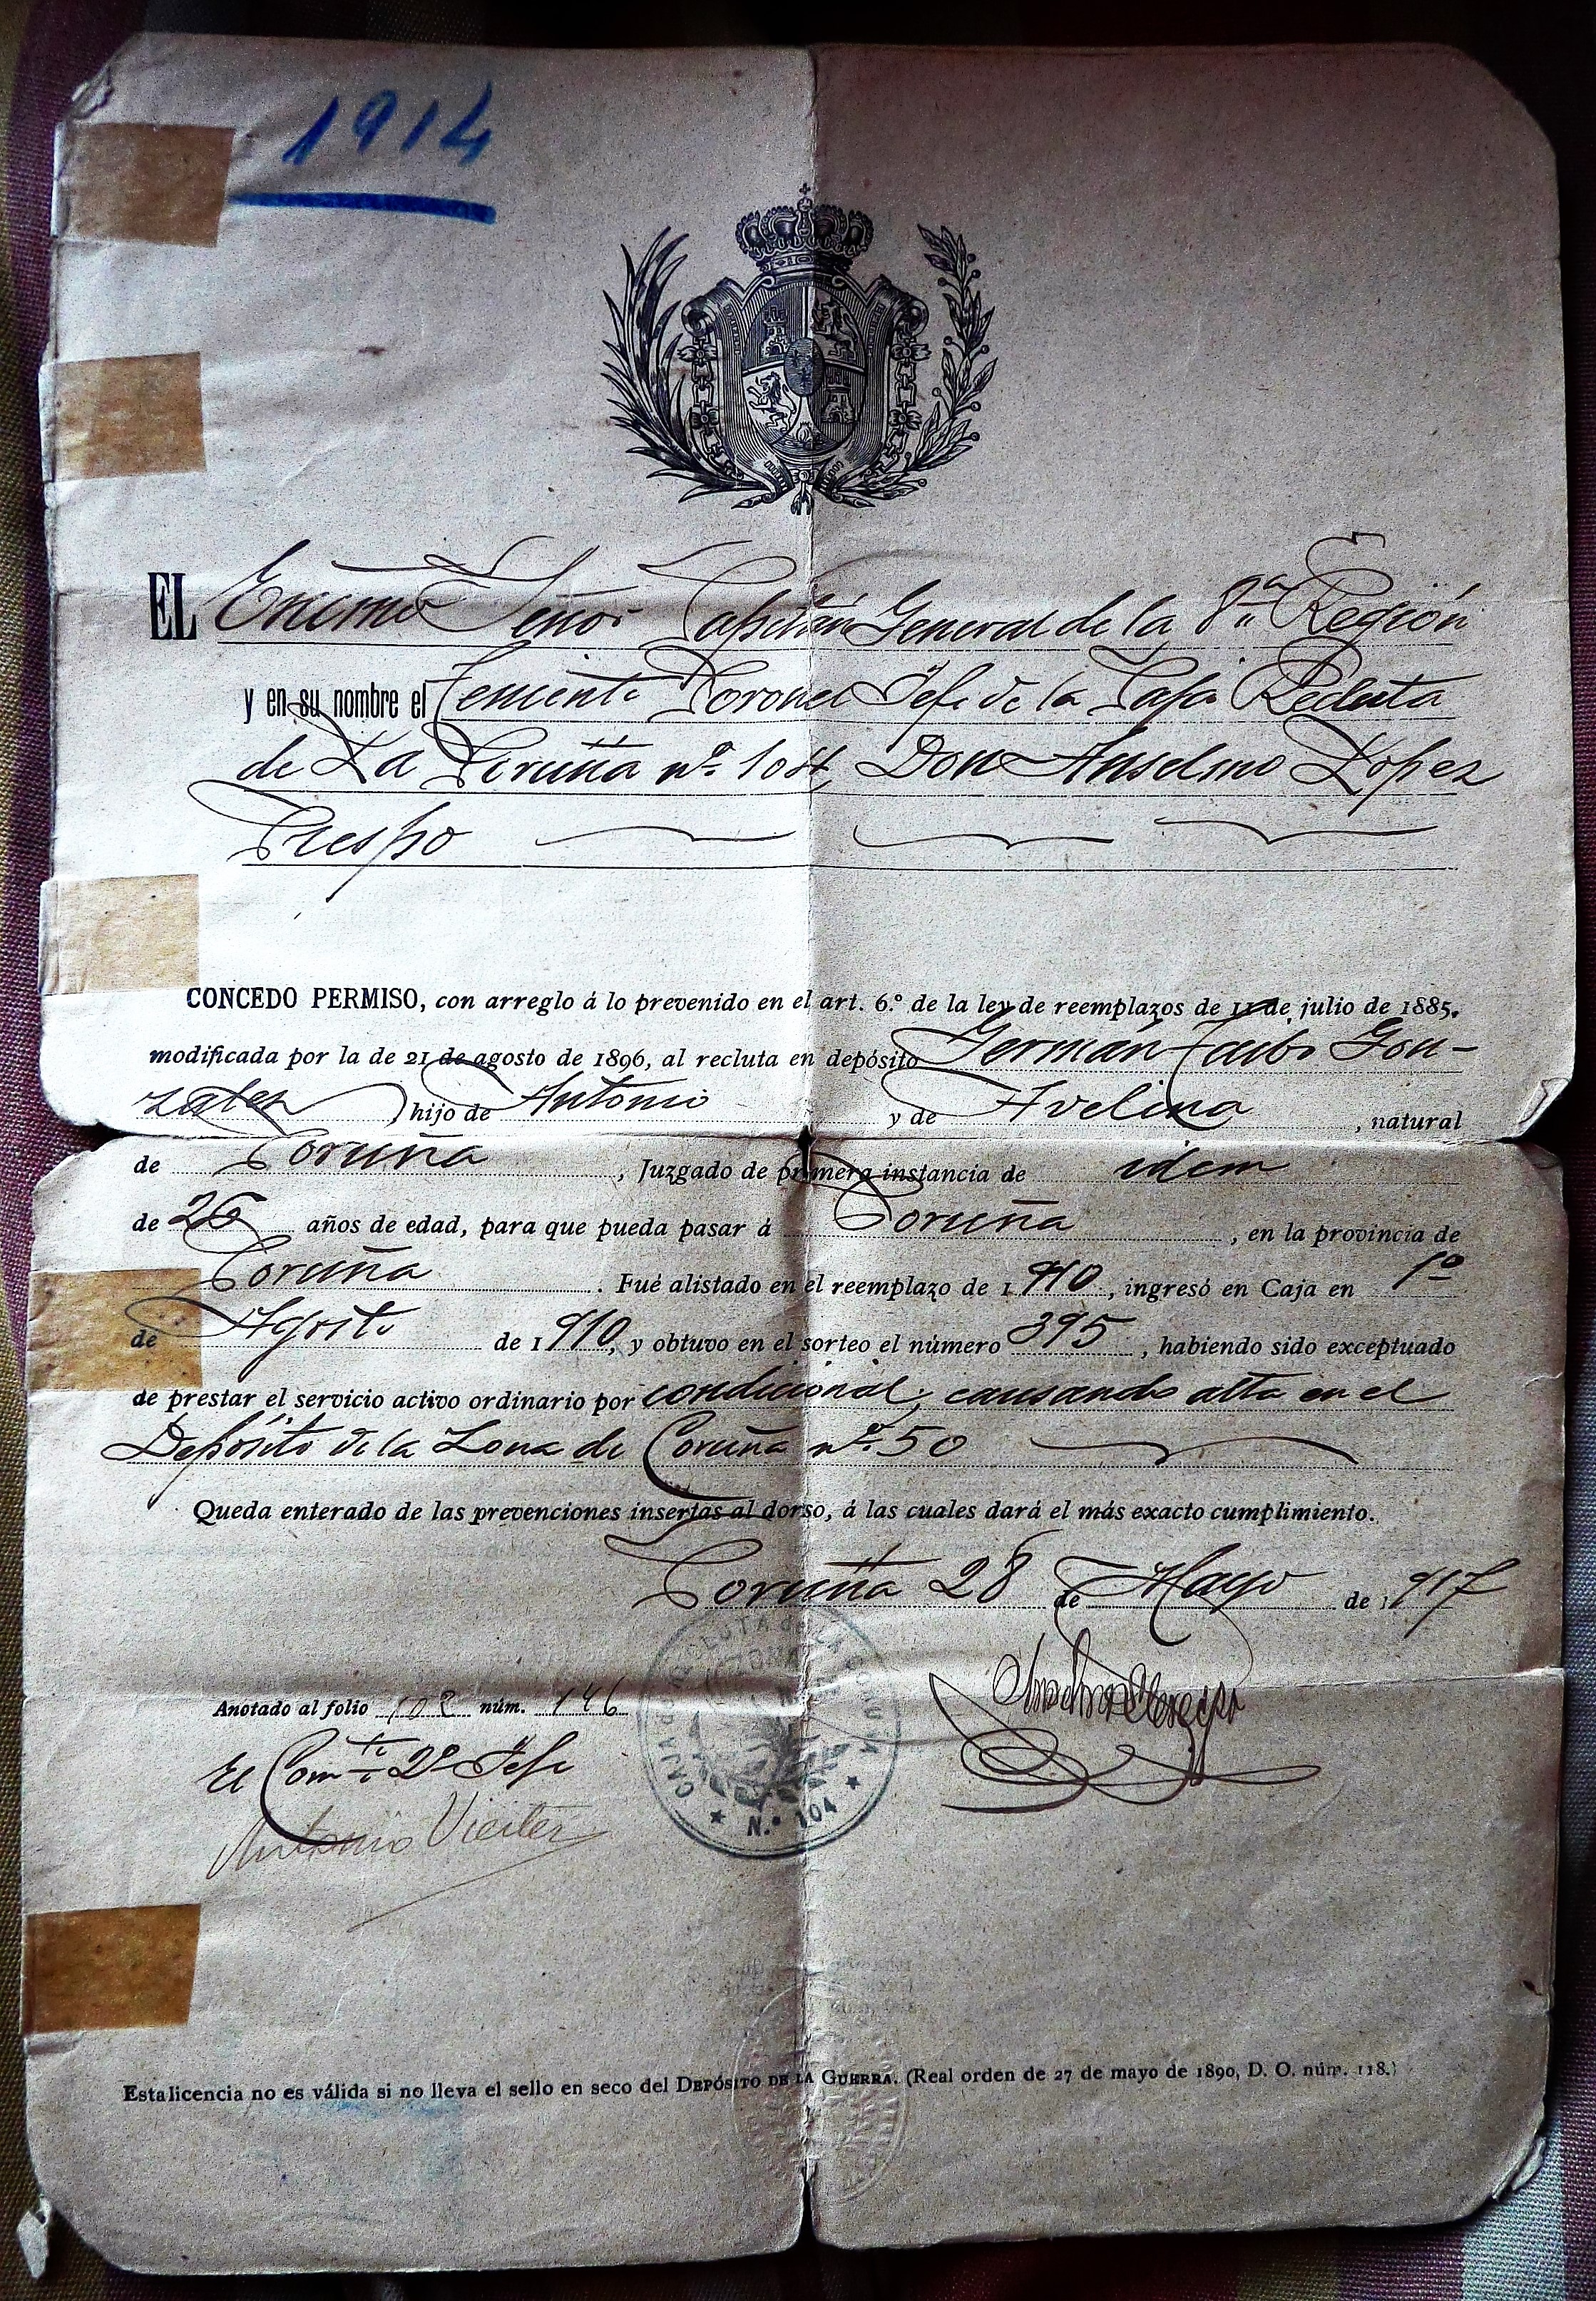 1914
EL Excmo Señor Capitán General de la 8ª Región
y en su nombre el Teniente Coronel Jefe de la Caja Recluta
de La Coruña nº 104, Don Anselmo Lopez
Crespo
CONCEDO PERMISO, con arreglo á lo prevenido en el art. 6.º de la ley de reemplazos de 11 de julio de 1885,
modificada por la de 21 de agosto de 1896, al recluta en depósito Germán Taibo Gon-
zalez hijo de Antonio y de Avelina, natural
de Coruña, Juzgado de primera instancia de idem
de 26 años de edad, para que pueda pasar á Coruña, en la provincia de
Coruña. Fué alistado en el reemplazo de 1910, ingresó en Caja en 1º
de Agosto de 1910, y obtuvo en el sorteo el número 395, habiendo sido exceptuado
de prestar el servicio activo ordinario por condicional, causando alta en el
Depósito de la Zona de Coruña nº 50
Queda enterado de las prevenciones insertas al dorso, á las cuales dará el más exacto cumplimiento.
Coruña 28 de Mayo de 1917
Anotado al folio 102 núm. 146
El Comte 2º Jefe
Antonio Vieites
CAJA DE RECLUTA de LA CORUÑA
ZONA
N.º 104
Esta licencia no es válida si no lleva el sello en seco del DEPÓSITO DE LA GUERRA. (Real orden de 27 de mayo de 1890, D. O. núm. 118.)